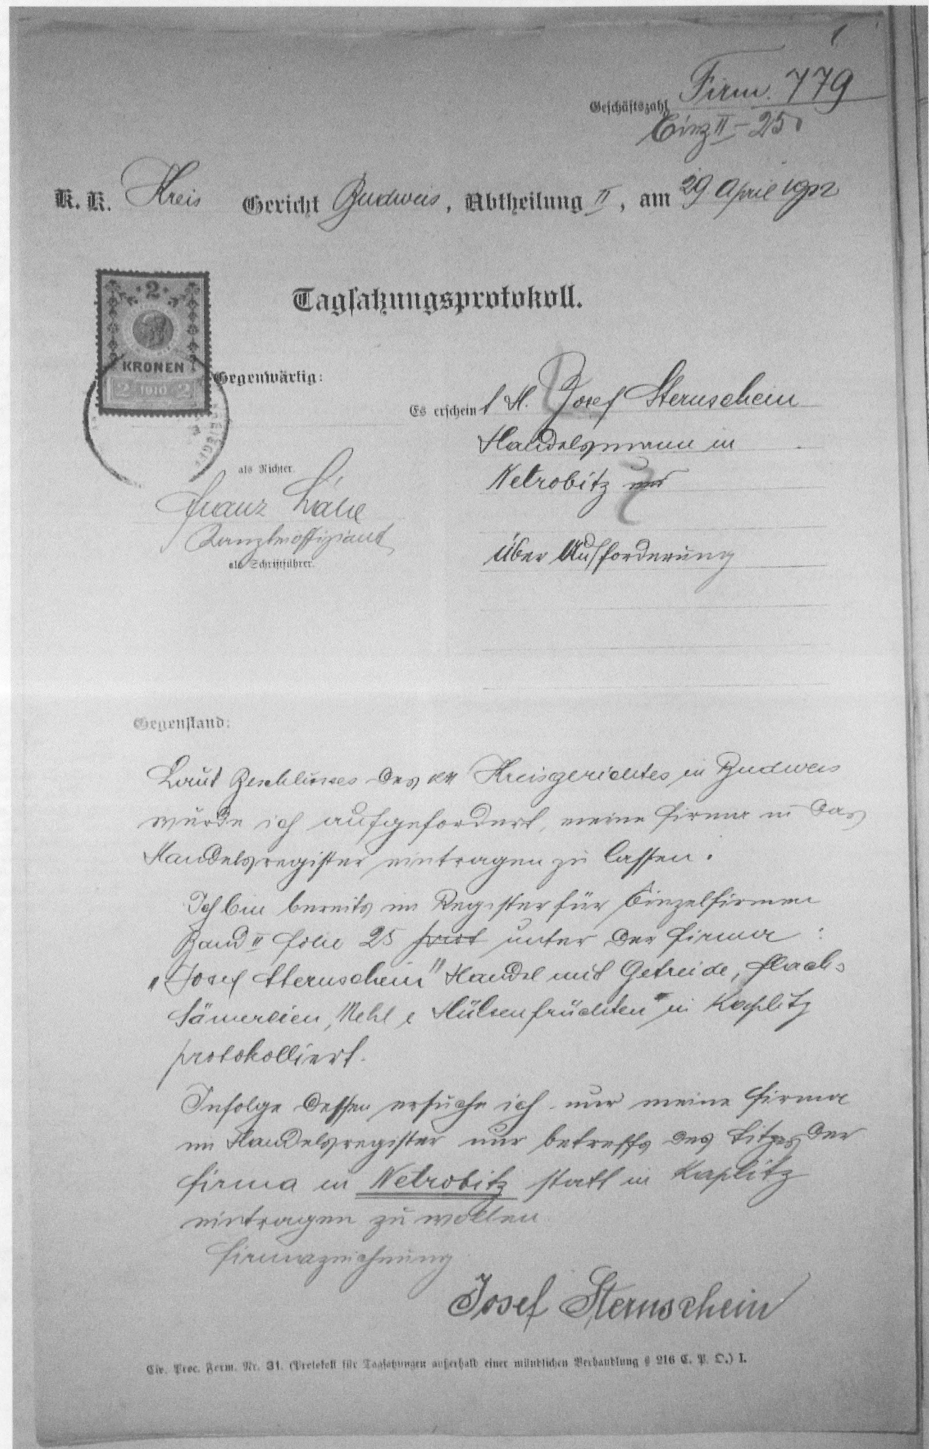 1
Geschäftszahl Firm. 779
Einz II – 25
K. K. Kreis Gericht Budweis, Abtheilung II, am 29 April 1912
Tagsatzungsprotokoll.
2
KRONEN
2 1910 2
Gegenwärtig:
Es erscheint H. Josef Sternschein
Handelsmann in
Netrobitz
als Richter.
Franz
Kanzleioffiziant
als Schriftführer.
über Aufforderung
Gegenstand:
Laut Beschlusses des kk Kreisgerichtes in Budweis
wurde ich aufgefordert, meine Firma in das
Handelsregister eintragen zu lassen.
Ich bin bereits im Register für Einzelfirmen
Band II folio 25 unter der Firma:
„Josef Sternschein" Handel mit Getreide, Flach-
sämereien, Mehl & Hülsenfrüchten" in Kaplitz
protokolliert.
Infolge dessen ersuche ich nur meine Firma
im Handelsregister nur betreffs des Sitzes der
Firma in Netrobitz statt in Kaplitz
eintragen zu wollen.
Firmazeichnung
Josef Sternschein
Civ. Proc. Form. Nr. 31. (Protokoll für Tagsatzungen außerhalb einer mündlichen Verhandlung § 216 C. P. O.) I.